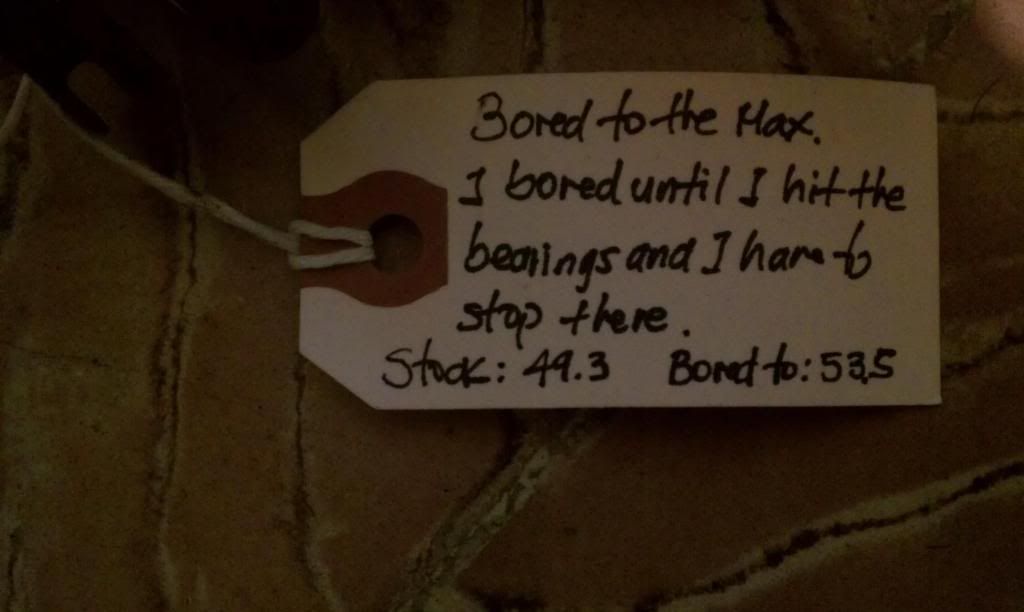 Bored to the Max.
I bored until I hit the
bearings and I have to
stop there.
Stock: 49.3 Bored to: 53.5